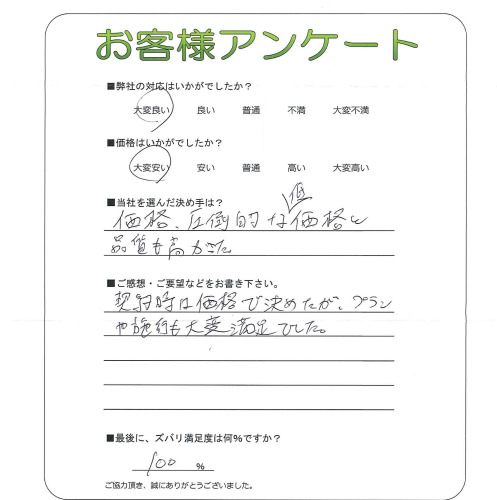 お客様アンケート
■弊社の対応はいかがでしたか？
大変良い 良い 普通 不満 大変不満
■価格はいかがでしたか？
大変安い 安い 普通 高い 大変高い
■当社を選んだ決め手は？
価格、圧倒的な低価格と
品質も高かった
■ご感想・ご要望などをお書き下さい。
契約時は価格で決めたが、プラン
や施行も大変満足でした。
■最後に、ズバリ満足度は何％ですか？
100 ％
ご協力頂き、誠にありがとうございました。